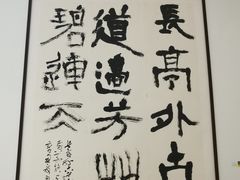 長亭外古
道邊芳艸
碧連天